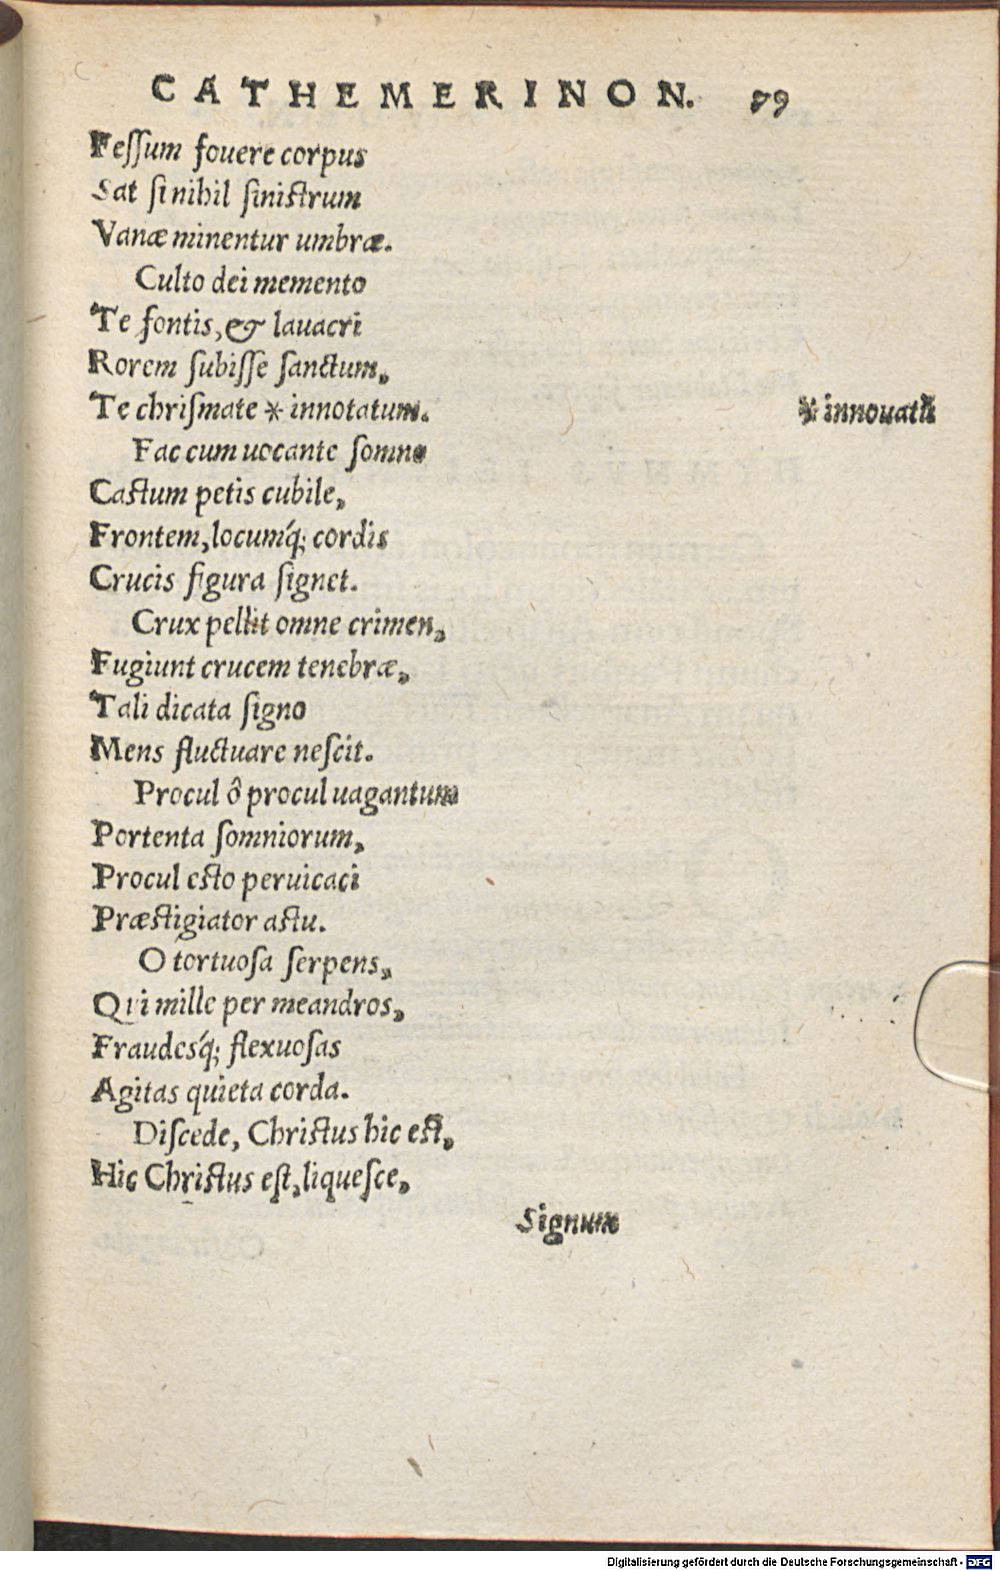 CATHEMERINON. 79
Feſſum fouere corpus
Sat ſi nihil ſiniſtrum
Vanæ minentur umbræ.
Culto dei memento
Te fontis, & lauacri
Rorem ſubiſſe ſanctum,
Te chriſmate * innotatum.
* innouatũ
Fac cum uocante ſomno
Caſtum petis cubile,
Frontem, locumq́; cordis
Crucis figura ſignet.
Crux pellit omne crimen,
Fugiunt crucem tenebræ,
Tali dicata ſigno
Mens fluctuare neſcit.
Procul ô procul uagantum
Portenta ſomniorum,
Procul eſto peruicaci
Præſtigiator aſtu.
O tortuoſa ſerpens,
Qui mille per meandros,
Fraudesq́; flexuoſas
Agitas quieta corda.
Diſcede, Chriſtus hic eſt,
Hic Chriſtus eſt, liqueſce,
Signum
Digitalisierung gefördert durch die Deutsche Forschungsgemeinschaft - DFG